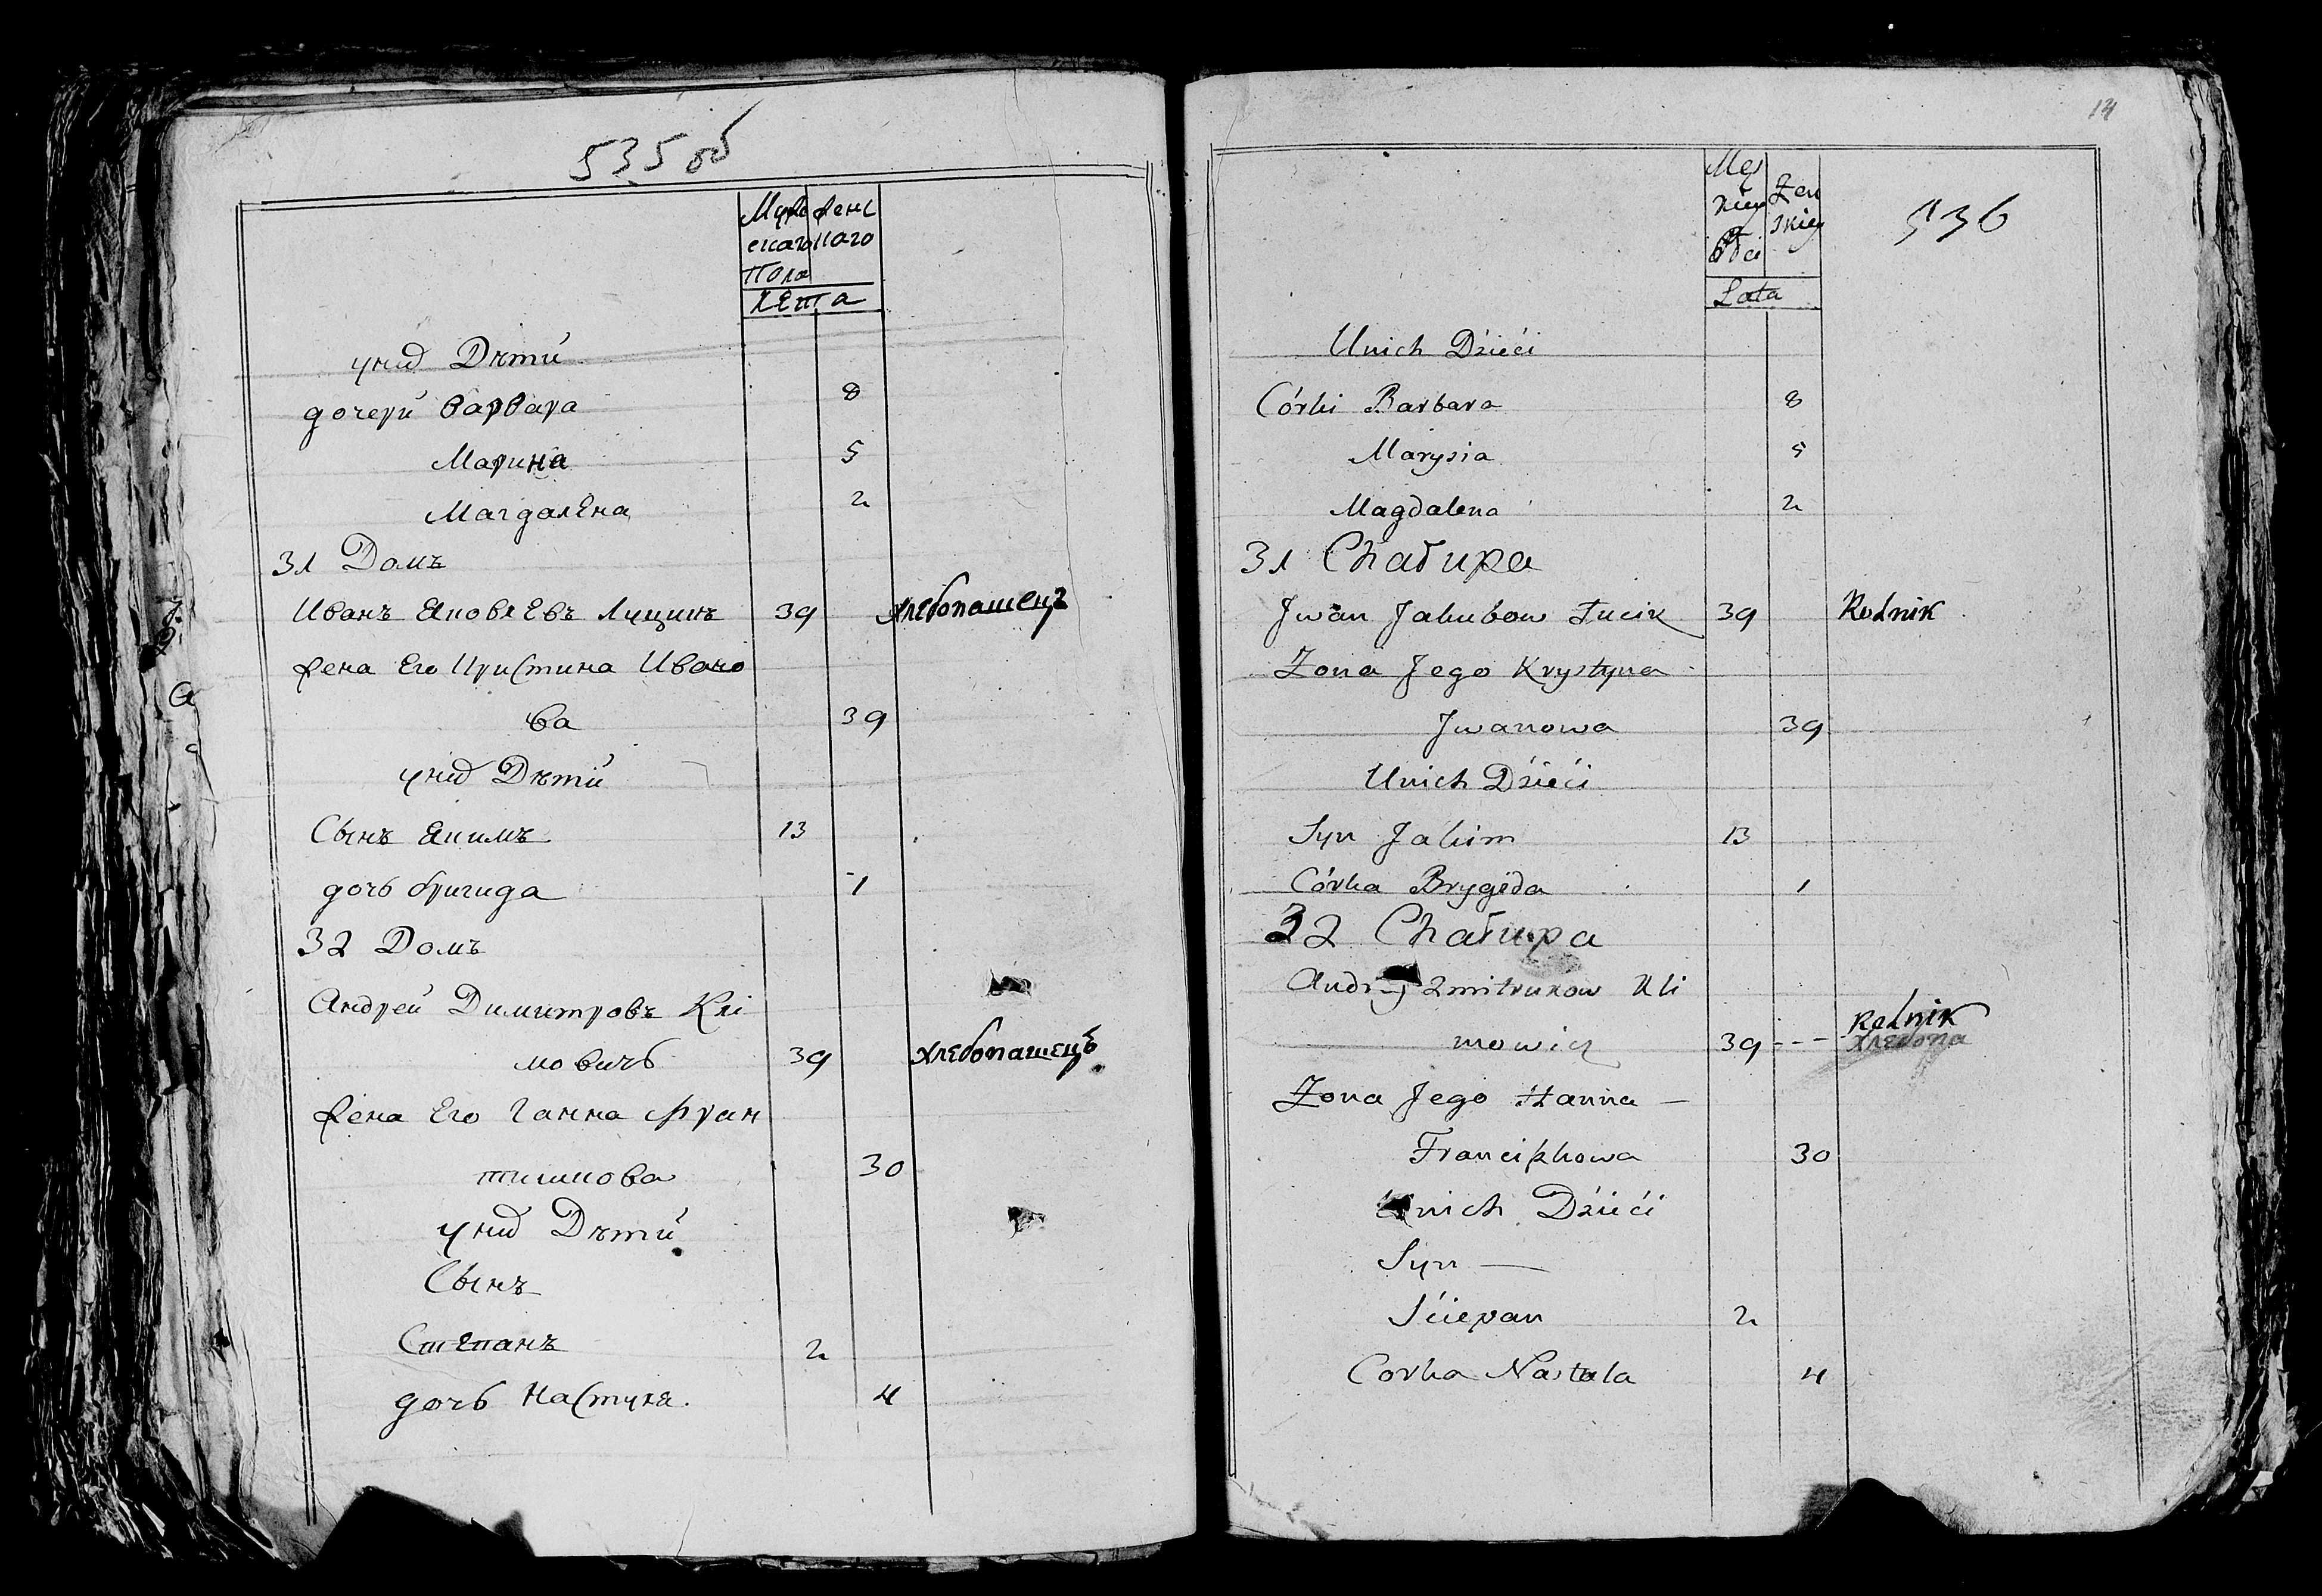 535 об
Мужескаго Женскаго
Пола
Лета
у них Дети
дочери Варвара 8
Марина 5
Магдалена 2
31 Домъ
Иванъ Яковлевъ Луцикъ 39 хлебопашецъ
Жена Его Кристина Ивано
ва 39
у них Дети
Сынъ Якимъ 13
дочь бригида 1
32 Домъ
Андрей Димитровъ Клі
мовичь 39 хлебопашецъ
Жена Его Ганна Фран
тишкова 30
у них Дети
Сынъ
Степанъ 2
дочь Настуля. 4
14
536
Męzkiey Zenskiey
Płci
Lata
Unich Dzieći
Córki Barbara 8
Marysia 5
Magdalena 2
31 Chałupa
Jwan Jakubow Łucik 39 Rolnik
Zona Jego Krystyna
Jwanowa 39
Unich Dzieći
Syn Jakim 13
Córka Brygida 1
32 Chałupa
Andrey Zmitrukow Kli
mowicz 39 --- Rolnik
хлебопа
Zona Jego Hanna —
Franciszkowa 30
Unich Dzieći
Syn —
Śćiepan 2
Corka Nastula 4